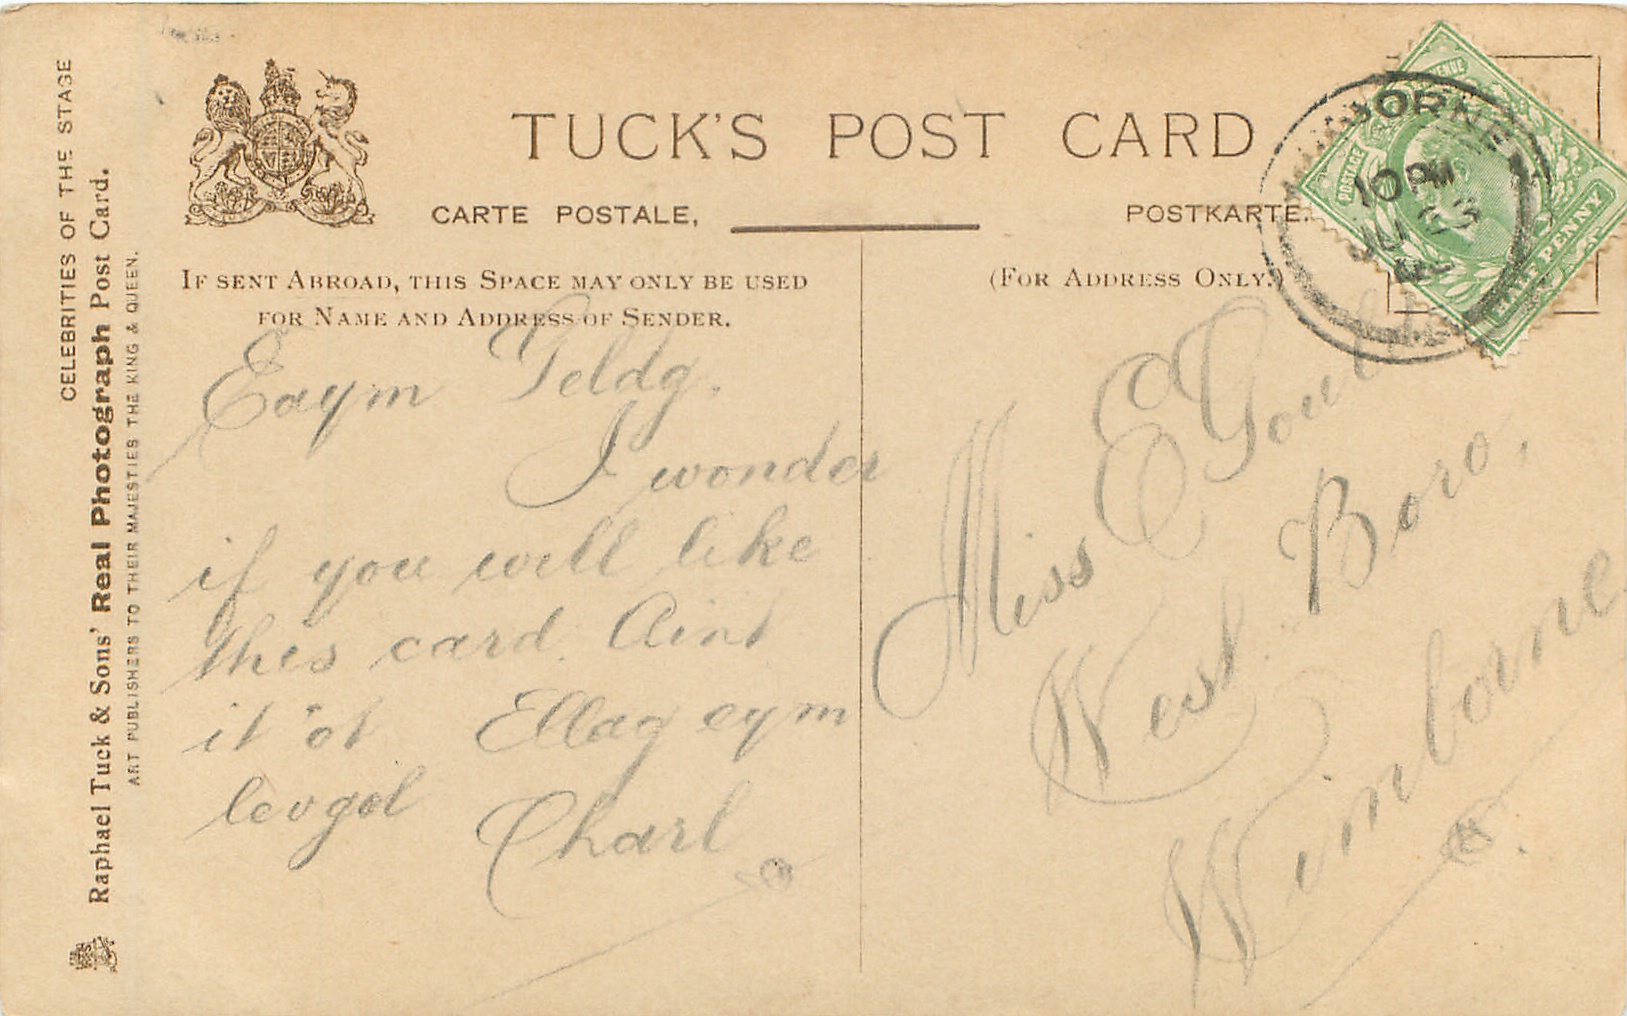 CELEBRITIES OF THE STAGE
Raphael Tuck & Sons' Real Photograph Post Card.
ART PUBLISHERS TO THEIR MAJESTIES THE KING & QUEEN.
TUCK'S POST CARD
CARTE POSTALE,
POSTKARTE.
IF SENT ABROAD, THIS SPACE MAY ONLY BE USED
FOR NAME AND ADDRESS OF SENDER.
(FOR ADDRESS ONLY.)
POSTAGE
HALF PENNY
10 PM
Eaym Geldg.
I wonder
if you will like
this card. Aint
it 'ot Ellag eym
levgol
Charl
Miss E Gould
West Boro,
Wimborne